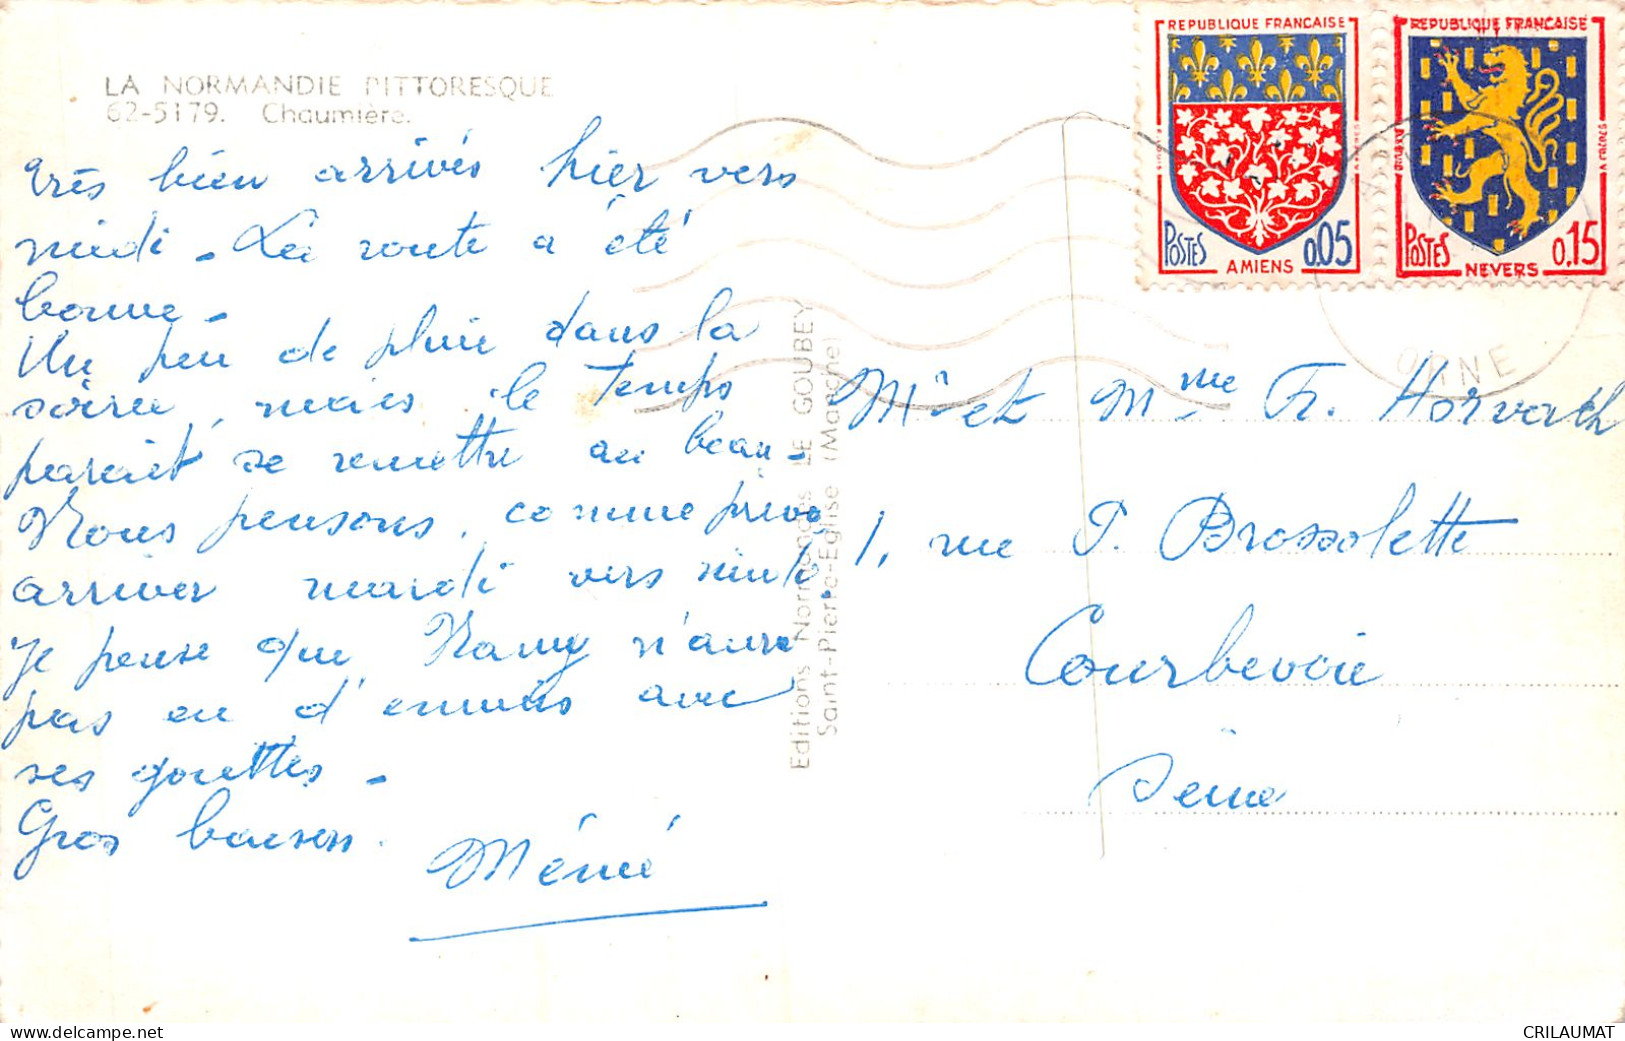 LA NORMANDIE PITTORESQUE
62-5179. Chaumière.
Très bien arrivés hier vers
midi - La route a été
bonne -
Un peu de pluie dans la
soirée, mais le temps
parait se remettre au beau -
Nous pensons, comme prévu,
arriver mardi vers midi
Je pense que Namy n'aura
pas eu d'ennuis avec
ses gouttes -
Gros baisers.
Mémé
Editions Normandes LE GOUBEY
Saint-Pierre-Eglise (Manche)
REPUBLIQUE FRANCAISE
POSTES 0,05
AMIENS
REPUBLIQUE FRANCAISE
POSTES 0,15
NEVERS
ORNE
Mr et Mme Fr. Horvath
1, rue P. Brossolette
Courbevoie
Seine
CRILAUMAT
www.delcampe.net